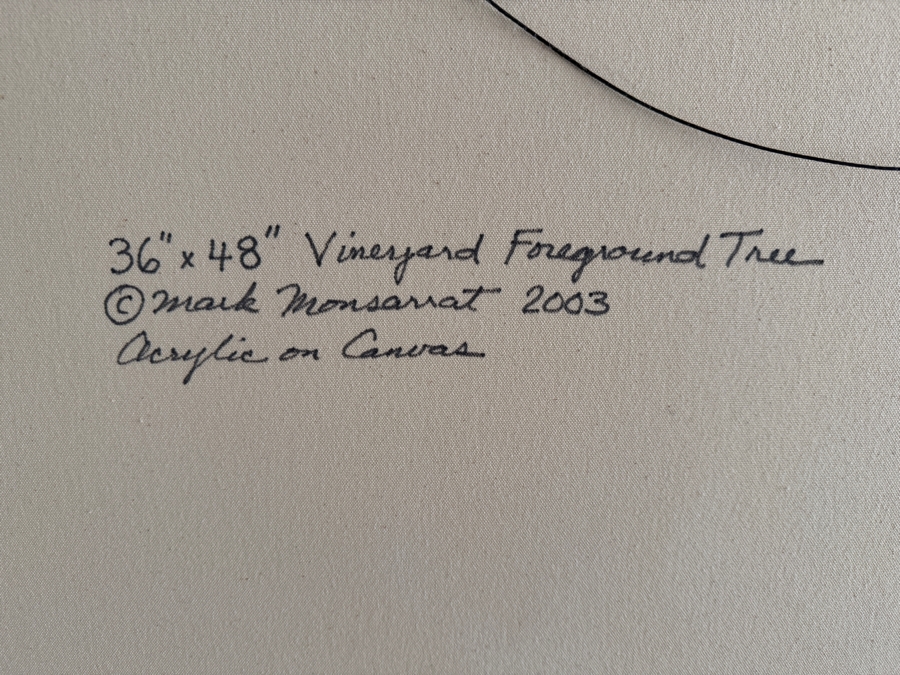 36" x 48" Vineryard Foreground Tree
© Mark Monsarrat 2003
Acrylic on Canvas